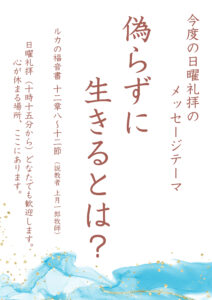 今度の日曜礼拝の
メッセージテーマ
偽らずに
生きるとは？
ルカの福音書 十二章八〜十二節 （説教者 上月一郎牧師）
日曜礼拝（十時十五分から）どなたでも歓迎します。
心が休まる場所、ここにあります。